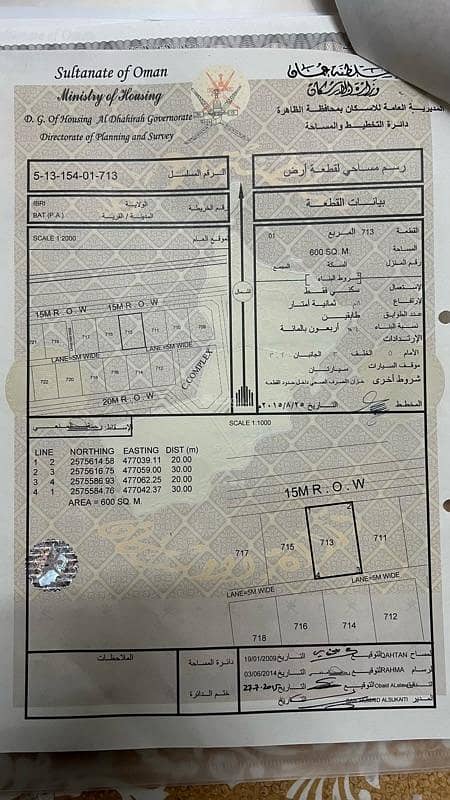 Sultanate of Oman
سلطنة عمان
Ministry of Housing
وزارة الإسكان
D. G. Of Housing Al Dhahirah Governorate
المديرية العامة للاسكان بمحافظة الظاهرة
Directorate of Planning and Survey
دائرة التخطيط والمساحة
5-13-154-01-713 الرقم المسلسل
رسم مساحي لقطعة أرض
IBRI الولاية
BAT (P.A.) المدينة / القرية
رقم الخريطة
بيانات القطعة
SCALE 1:2000 الموقع العام
القطعة 713 المربع 01
المساحة 600 SQ. M.
رقم المنزل السكة المجمع
شروط البناء
الاستعمال سكني فقط
الارتفاع ثمانية أمتار
عدد الطوابق طابقين
نسبة البناء أربعون بالمائة
الإرتدادات
الأمام 5 الخلف 3 الجانبان
موقف السيارات سيارتان
شروط أخرى خزان الصرف الصحي داخل حدود القطعة
المخطط التاريخ ٢٠١٥/٨/٢٥
15M R . O . W
15M R . O . W
LANE=5M WIDE
LANE=5M WIDE
20M R. O. W
C.COMPLEX
الشمال
SCALE 1:1000
LINE NORTHING EASTING DIST (m)
1 2 2575614.58 477039.11 20.00
2 3 2575616.75 477059.00 30.00
3 4 2575586.93 477062.25 20.00
4 1 2575584.76 477042.37 30.00
AREA = 600 SQ. M.
15M R . O . W
717
715
713
711
LANE=5M WIDE
LANE=5M WIDE
718
716
714
712
الملاحظات
دائرة المساحة
ختم الدائرة
المساح QAHTAN التوقيع التاريخ 19/01/2009
الرسام RAHMA التوقيع التاريخ 03/06/2014
التدقيق Obaid التوقيع التاريخ
المدير ALSUKAITI